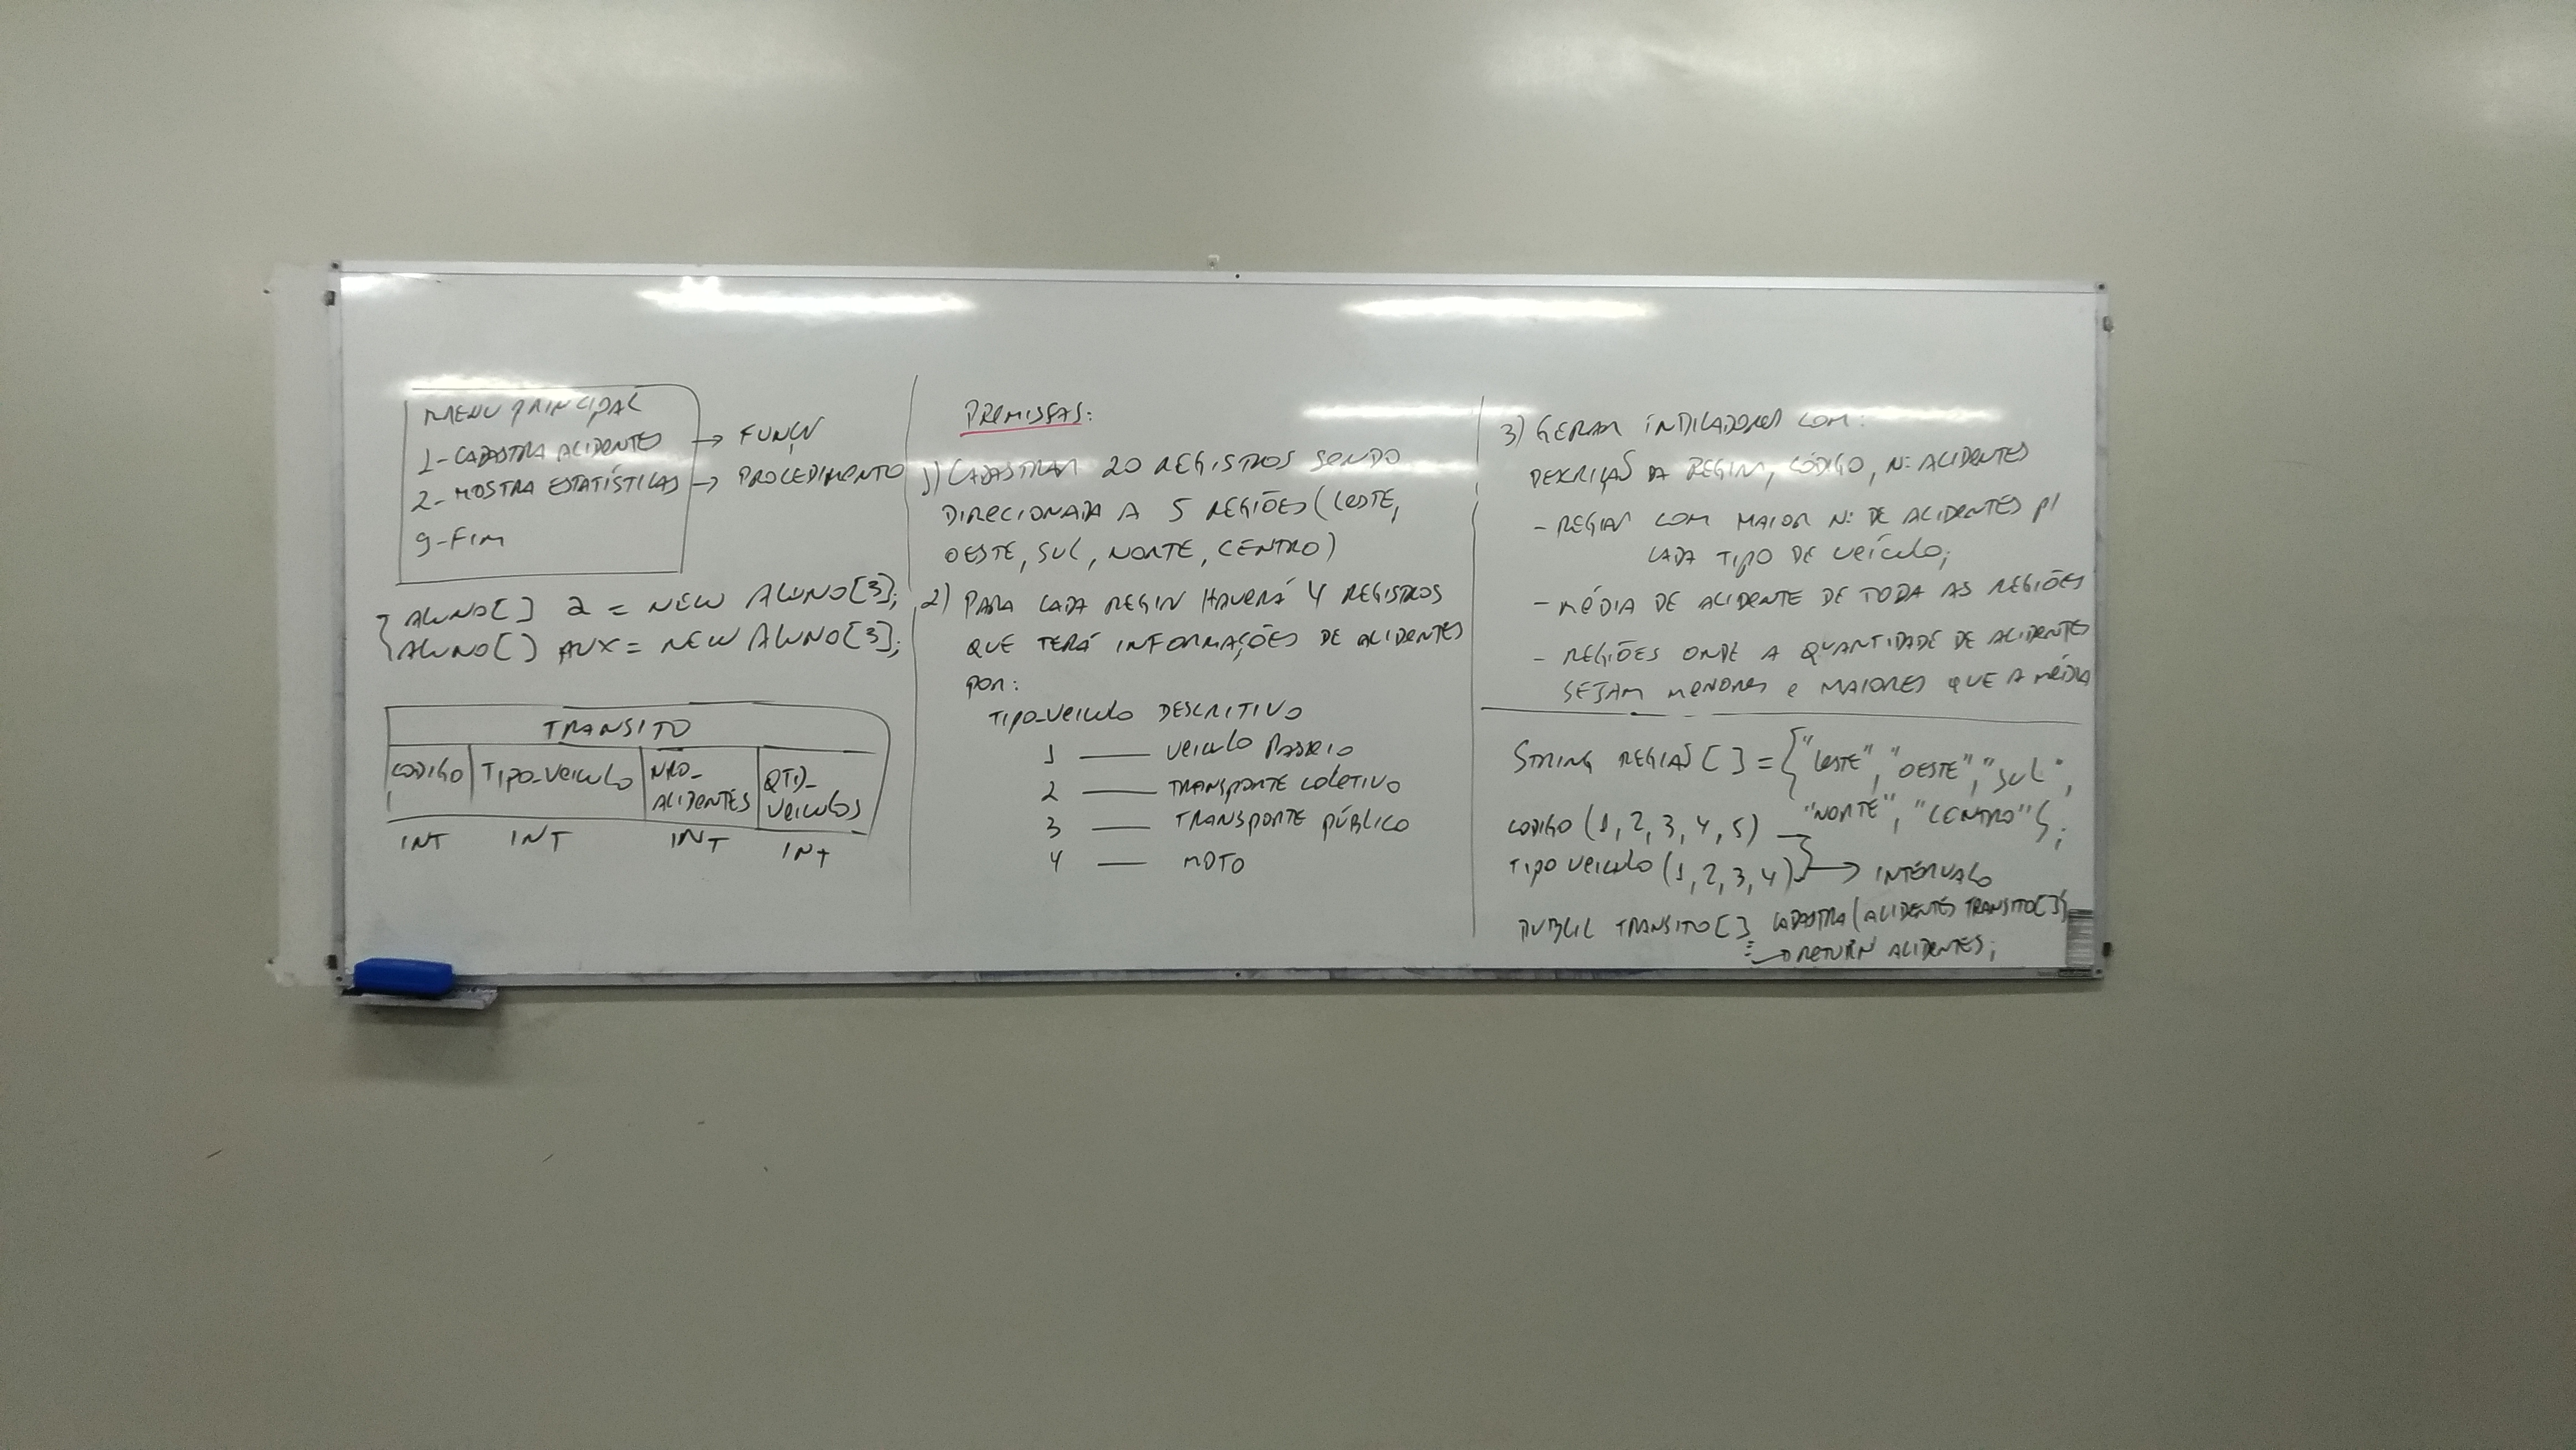 MENU PRINCIPAL
1-CADASTRA ACIDENTES → FUNÇÃO
2-MOSTRA ESTATÍSTICAS → PROCEDIMENTO
9-FIM
ALUNO[] a = NEW ALUNO[3];
ALUNO[] AUX = NEW ALUNO[3];
TRANSITO
CODIGO TIPO_VEICULO NRO_ACIDENTES QTD_VEICULOS
INT INT INT INT
PREMISSAS:
1) CADASTRAR 20 REGISTROS SENDO
DIRECIONADA A 5 REGIÕES (LESTE,
OESTE, SUL, NORTE, CENTRO)
2) PARA CADA REGIÃO HAVERÁ 4 REGISTROS
QUE TERÁ INFORMAÇÕES DE ACIDENTES
POR:
TIPO_VEICULO DESCRITIVO
1 — VEICULO PASSEIO
2 — TRANSPORTE COLETIVO
3 — TRANSPORTE PÚBLICO
4 — MOTO
3) GERAR INDICADORES COM:
DESCRIÇÃO DA REGIÃO, CÓDIGO, Nº ACIDENTES
- REGIÃO COM MAIOR Nº DE ACIDENTES P/
CADA TIPO DE VEÍCULO;
- MÉDIA DE ACIDENTE DE TODA AS REGIÕES
- REGIÕES ONDE A QUANTIDADE DE ACIDENTES
SEJAM MENORES e MAIORES QUE A MÉDIA
STRING REGIAO[] = {"LESTE", "OESTE", "SUL",
"NORTE", "CENTRO"};
CODIGO (1, 2, 3, 4, 5)
TIPO VEICULO (1, 2, 3, 4) } → INTERVALO
PUBLIC TRANSITO[] CADASTRA (ACIDENTES TRANSITO[])
→ RETURN ACIDENTES;